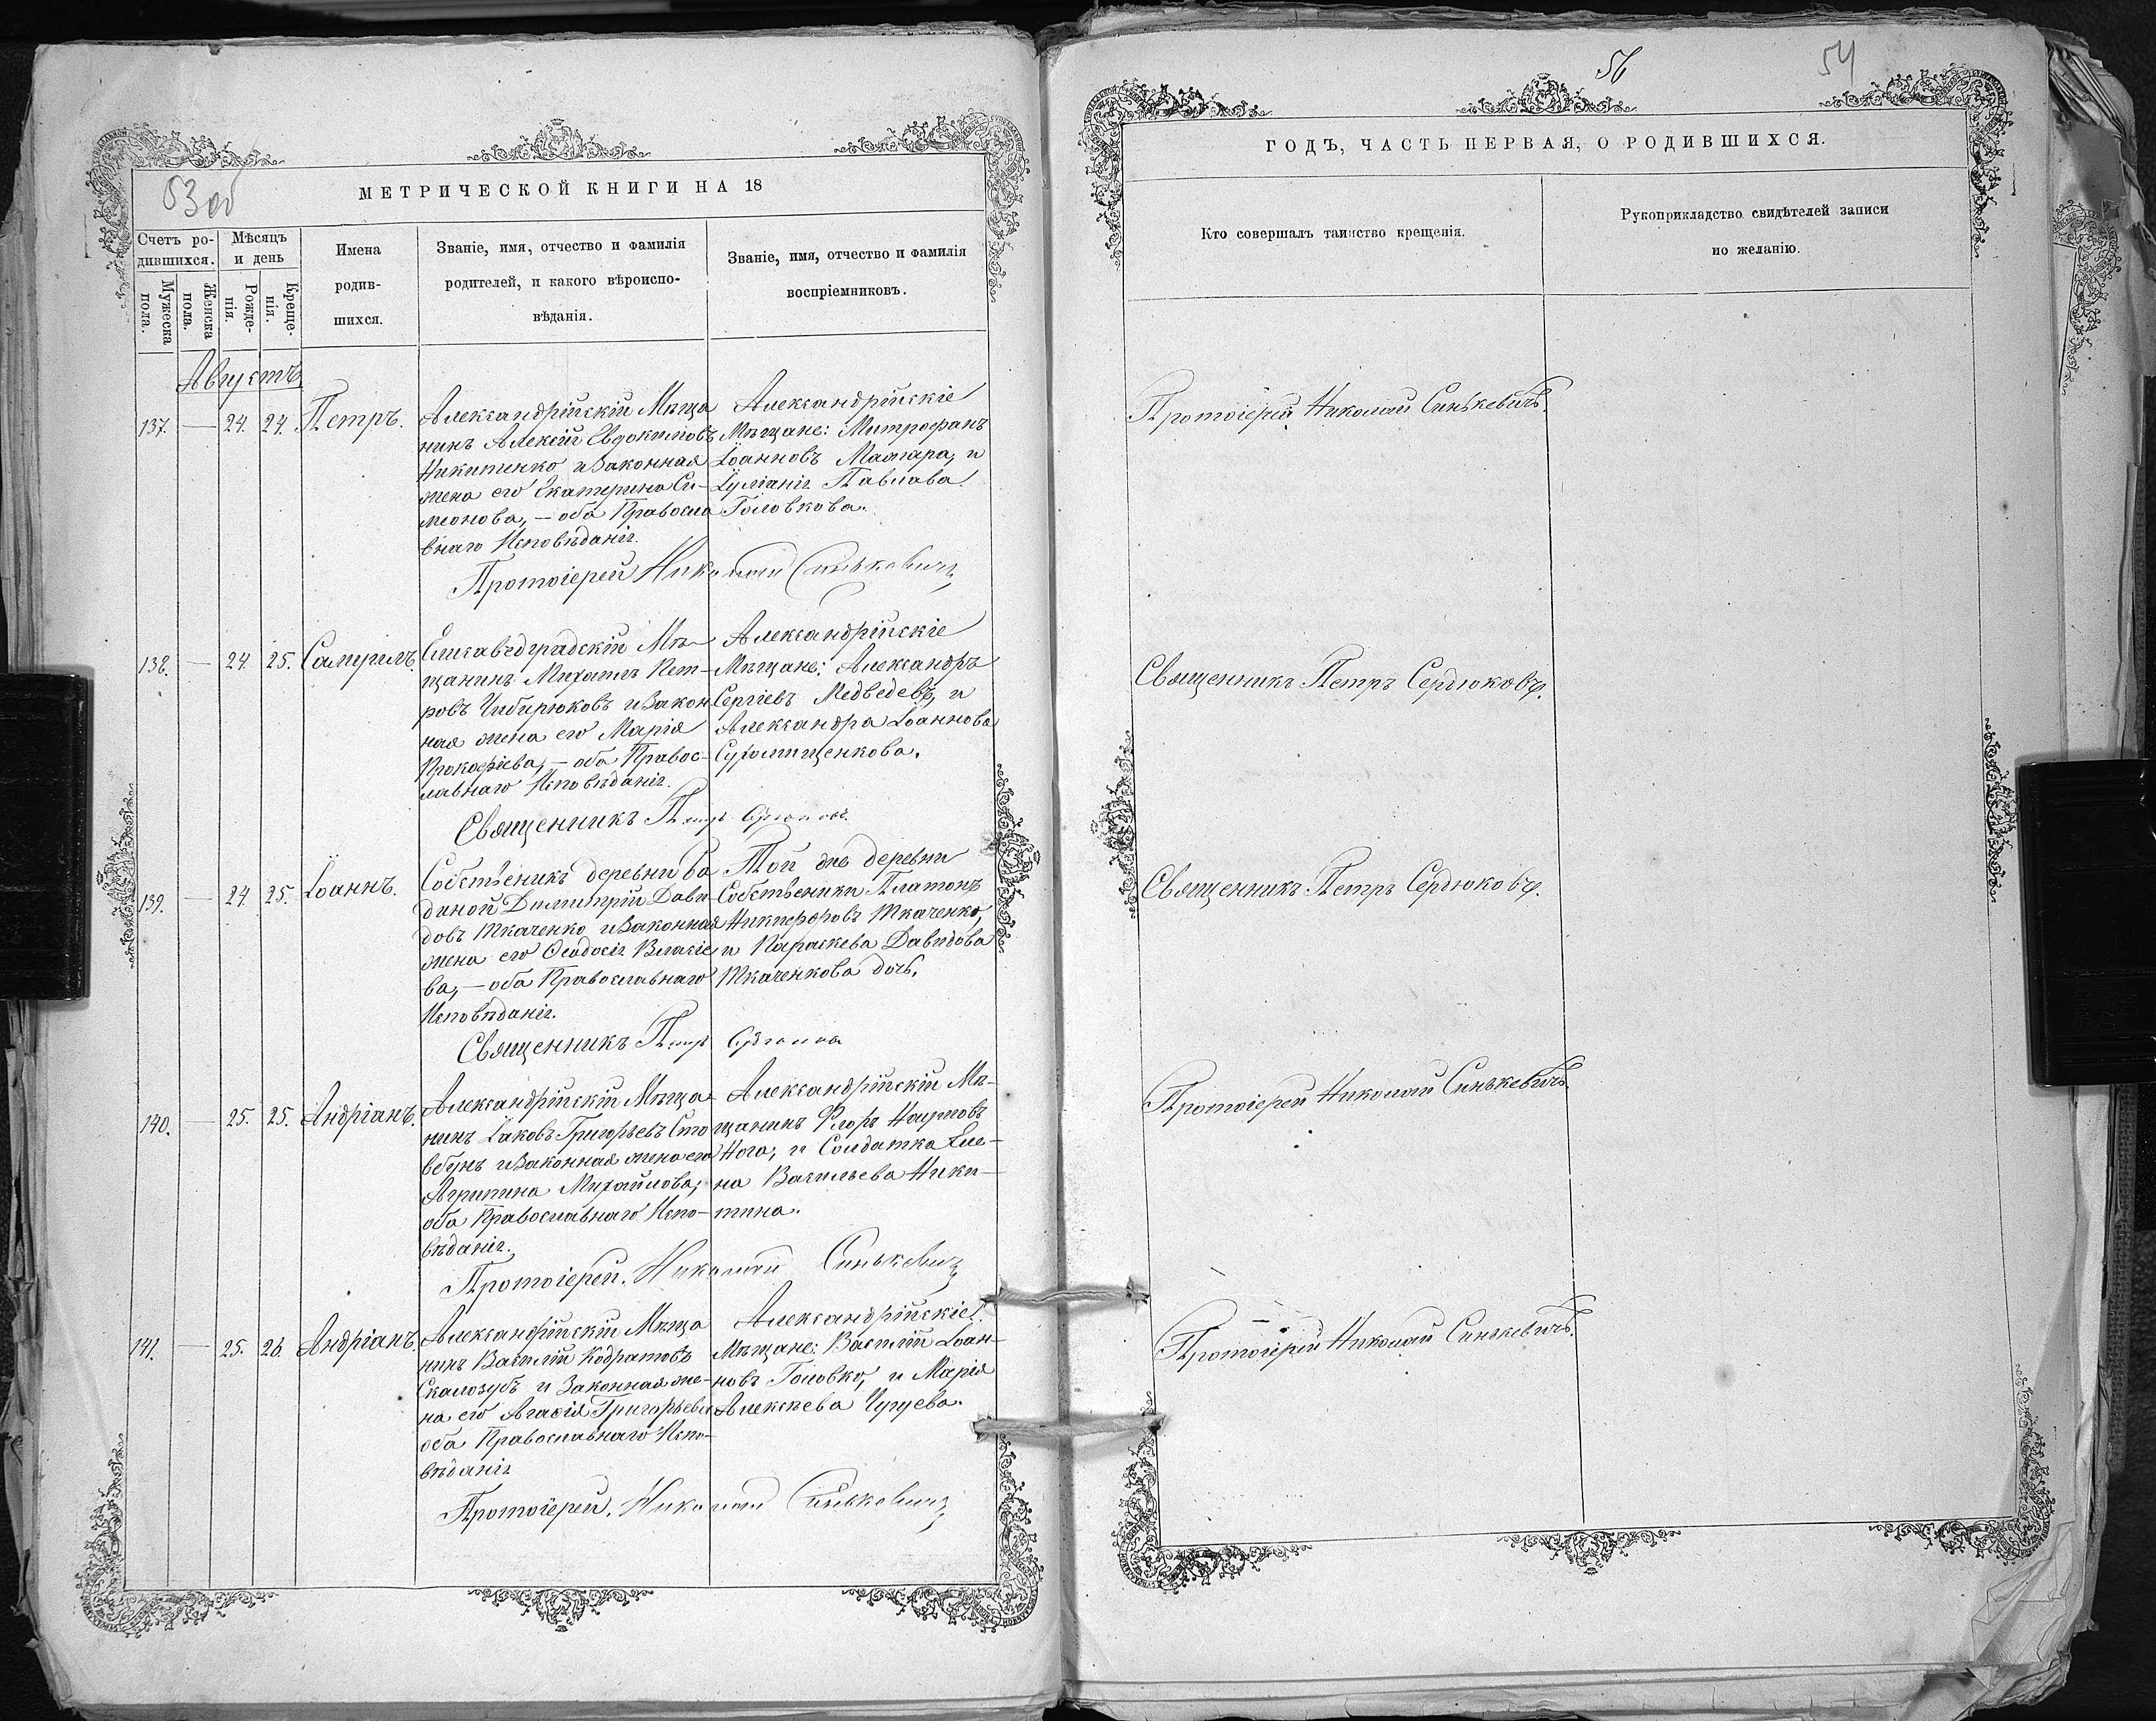 53 об
МЕТРИЧЕСКОЙ КНИГИ НА 18
Счетъ ро-
дившихся.
Мужеска
пола.
Женска
пола.
Мѣсяцъ
и день
Рожде-
нія.
Креще-
нія.
Имена
родив-
шихся.
Званіе, имя, отчество и фамилія
родителей, и какого вѣроиспо-
вѣданія.
Званіе, имя, отчество и фамилія
воспріемниковъ.
Августъ
137. — 24. 24. Петръ.
Александрійскій Мѣща
нинъ Алексій Евдокимовъ
Никитенко и законная
жена его Екатерина Си-
меонова, — оба Правосла
внаго Исповѣданія.
Александрійскіе
Мѣщане: Митрофанъ
Іоанновъ Мажара, и
Іуліанія Павлова
Головкова.
Протоіерей Николай Синькевичъ
138. — 24. 25. Самуилъ.
Елисаведградскій Мѣ-
щанинъ Михаилъ Пет-
ровъ Чибирюковъ и закон
ная жена его Марія
Прокофіева, — оба Правос-
лавнаго Исповѣданія.
Александрійскіе
Мѣщане: Александръ
Сергіевъ Медведевъ, и
Александра Іоаннова
Сухомищенкова.
Священникъ Петръ
139. — 24. 25. Іоаннъ.
Собственикъ деревни Ва
диной Димитрій Дави-
довъ Ткаченко и законная
жена его Ѳеодосія Власіе
ва, — оба Православнаго
Исповѣданія.
Той же деревни
Собственики Платонъ
Никифоровъ Ткаченко,
и Параскева Давидова
Ткаченкова дочь.
Священникъ Петръ
140. — 25. 25. Андріанъ.
Александрійскій Мѣща
нинъ Іаковъ Григорьевъ Сто
вбунъ и законная жена его
Агрипина Михайлова,
оба Православнаго Испо-
вѣданія.
Александрійскій Мѣ-
щанинъ Флоръ Наумовъ
Нога, и Солдатка Еле-
на Васильева Ники-
тина.
Протоіерей. Николай Синькевичъ
141. — 25. 26. Андріанъ.
Александрійскій Мѣща
нинъ Василій Кодратовъ
Скалозубъ и Законная же-
на его Агафія Григорьева
оба Православнаго Испо-
вѣданія
Александрійскіе
Мѣщане: Василій Іоан-
новъ Головко, и Марія
Алексѣева Чугуева.
Протоіерей. Николай Синькевичъ
56
54
ГОДЪ, ЧАСТЬ ПЕРВАЯ, О РОДИВШИХСЯ.
Кто совершалъ таинство крещенія.
Рукоприкладство свидѣтелей записи
по желанію.
Протоіерей Николай Синькевичъ.
Священникъ Петръ Сердюковъ.
Священникъ Петръ Сердюковъ.
Протоіерей Николай Синькевичъ.
Протоіерей Николай Синькевичъ.